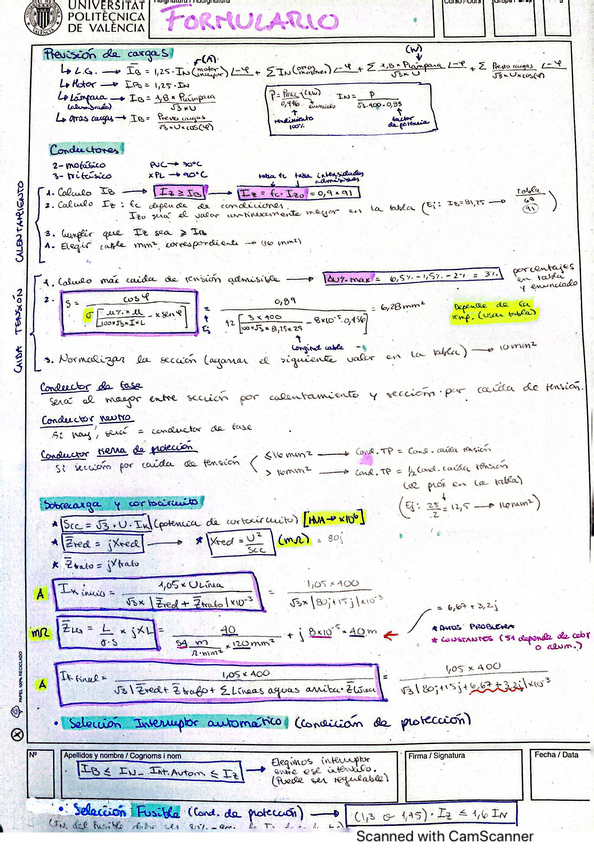 UNIVERSITAT
POLITÈCNICA
DE VALÈNCIA
FORMULARIO
Previsión de cargas
(A) (W)
↳ L.G. → I̅B = 1,25 · IN (motor mayor) ∠-φ + Σ IN (otros motores) ∠-φ + Σ 1,8 × Plámpara / √3×U ∠-φ + Σ Prevo cargas / √3×U×cos(φ)
↳ Motor → IB = 1,25 · IN
↳ Lámpara → IB = 1,8 × Plámpara / √3 × U
(alumbrado)
↳ Otras cargas → IB = Prevo cargas / √3×U×cos(φ)
IN = P / √3·400·0,85
rendimiento
100%
factor
de potencia
Conductores
2- monofásico PVC → 70°C
3- Trifásico XPL → 90°C
CALENTAMIENTO
tabla fc tabla intensidades admisibles
1. Calculo IB → IZ ≥ IB → IZ = fc · IZ0 = 0,9 × 91
2. Calculo IZ : fc depende de condiciones
IZ0 será el valor inmediatamente mayor en la tabla (Ej: IB=81,25 → Tabla 68 91)
3. Cumplir que IZ sea ≥ IB
4. Elegir cable mm², correspondiente → (16 mm²)
CAIDA TENSIÓN
1. Calculo máx caida de tensión admisible → ΔU% max = 6,5% - 1,5% - 2% = 3% porcentajes en tabla y enunciado
2. S = cos φ / σ [ u% × u / 100×√3×I×L - x sen φ ] = 0,89 / 42 [ 3 × 400 / 100×√3×81,25×25 - 8×10⁻⁵ · 0,456 ] = 6,28 mm²
Ej
Longitud cable
Depende de la
temp. (usar tabla)
3. Normalizar la sección (agarrar el siguiente valor en la tabla) → 10 mm²
Conductor de fase
Será el mayor entre sección por calentamiento y sección por caida de tensión.
Conductor neutro
Si hay, será = conductor de fase
Conductor tierra de protección
Si sección por caida de tensión
≤ 16 mm² → Cond. TP = Cond. caida tensión
> 16 mm² → Cond. TP = 1/2 Cond. caida tensión
(el prox en la tabla)
(Ej: 25/2 = 12,5 → 16 mm²)
Sobrecarga y cortocircuito
* Scc = √3 · U · Ik (potencia de cortocircuito) [MVA → ×10⁶]
* Z̅red = jXred → * Xred = U² / Scc (mΩ) = 80j
* Z̅trafo = jXtrafo
A Ik inicio = 1,05 × U Línea / √3 × |Z̅red + Z̅trafo| × 10⁻³ = 1,05 × 400 / √3 × |80j+15j| × 10⁻³
mΩ Z̅LG = L / σ·S × jXL = 40 / 51 m/Ω·mm² × 120mm² + j 8×10⁻⁵ × 40m
= 6,67 + 3,2j
* DATOS PROBLEMA
* CONSTANTES (51 depende de cobr
o alum.)
A Ik final = 1,05 × 400 / √3 |Z̅red + Z̅trafo + Σ Líneas aguas arriba · Z̅Línea| = 1,05 × 400 / √3 |80j+15j+6,67+3,2j| × 10⁻³
• Selección Interruptor automático (condición de protección)
PAPEL 100% RECICLADO
Nº
Apellidos y nombre / Cognoms i nom
Firma / Signatura
Fecha / Data
IB ≤ IN Int. Autom ≤ IZ → Elegimos interruptor
entre ese intervalo.
(Puede ser regulable)
• Selección Fusible (Cond. de protección) → (1,3 o 1,45) · IZ ≤ 1,6 IN
Scanned with CamScanner